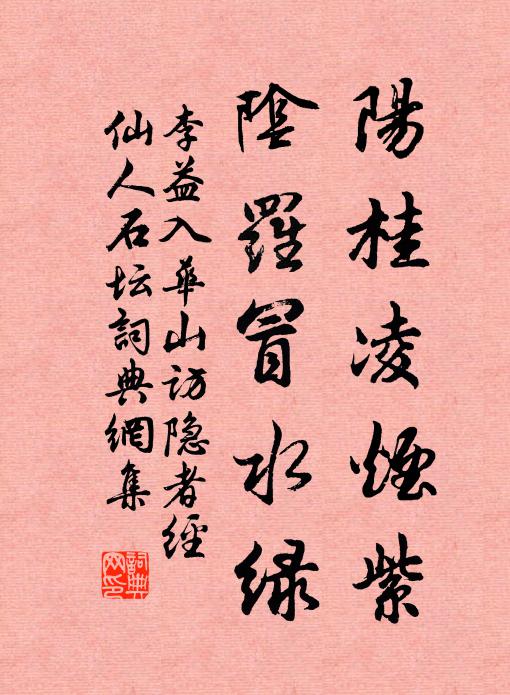 陽桂凌煙紫
陰羅冒水綠
李益入華山访隐者經
仙人石坛詞典網集
詞典网印